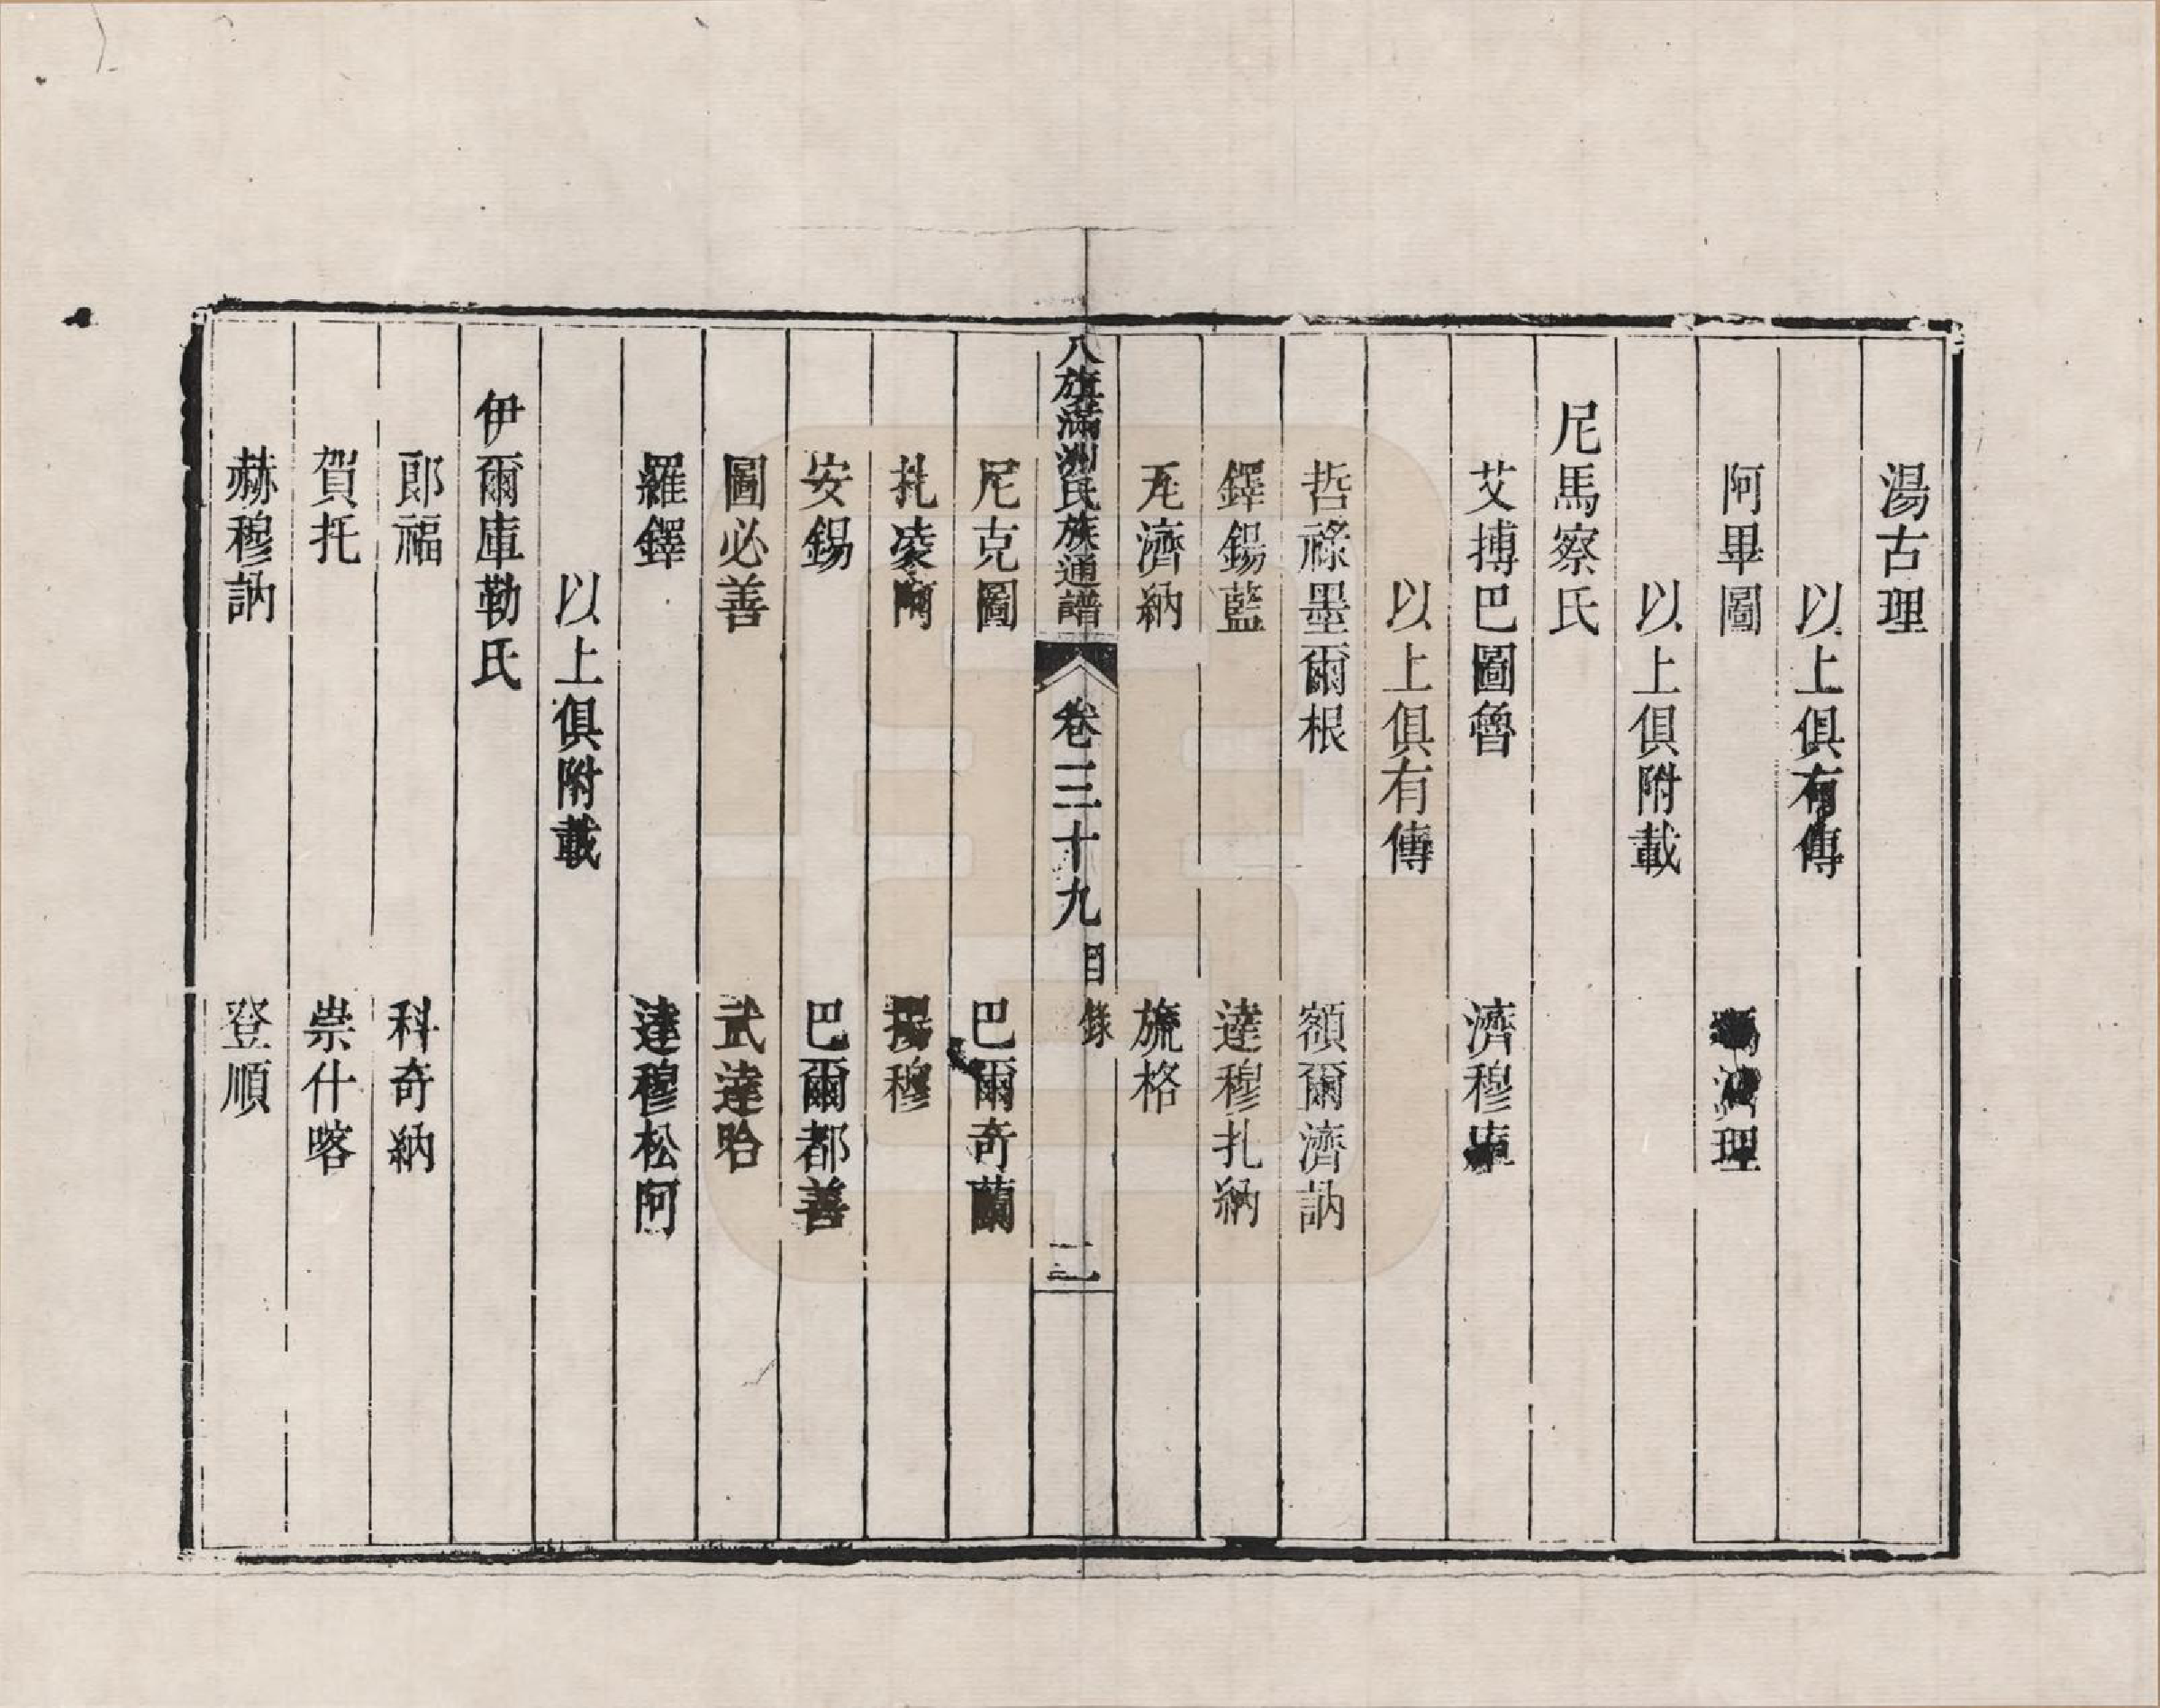 湯古理
以上俱有傳
阿畢圖　理
以上俱附載
尼馬察氏
艾搏巴圖魯　濟穆庫
以上俱有傳
哲祿墨爾根　額爾濟訥
鐸錫藍　達穆扎納
尼濟納　旒格
八旗滿洲氏族通譜　卷三十九　目錄　二
尼克圖　巴爾奇蘭
扎凌阿　穆
安錫　巴爾都善
圖必善　武達哈
羅鐸　達穆松阿
以上俱附載
伊爾庫勒氏
郎福　科奇納
賀托　崇什喀
赫穆訥　登順